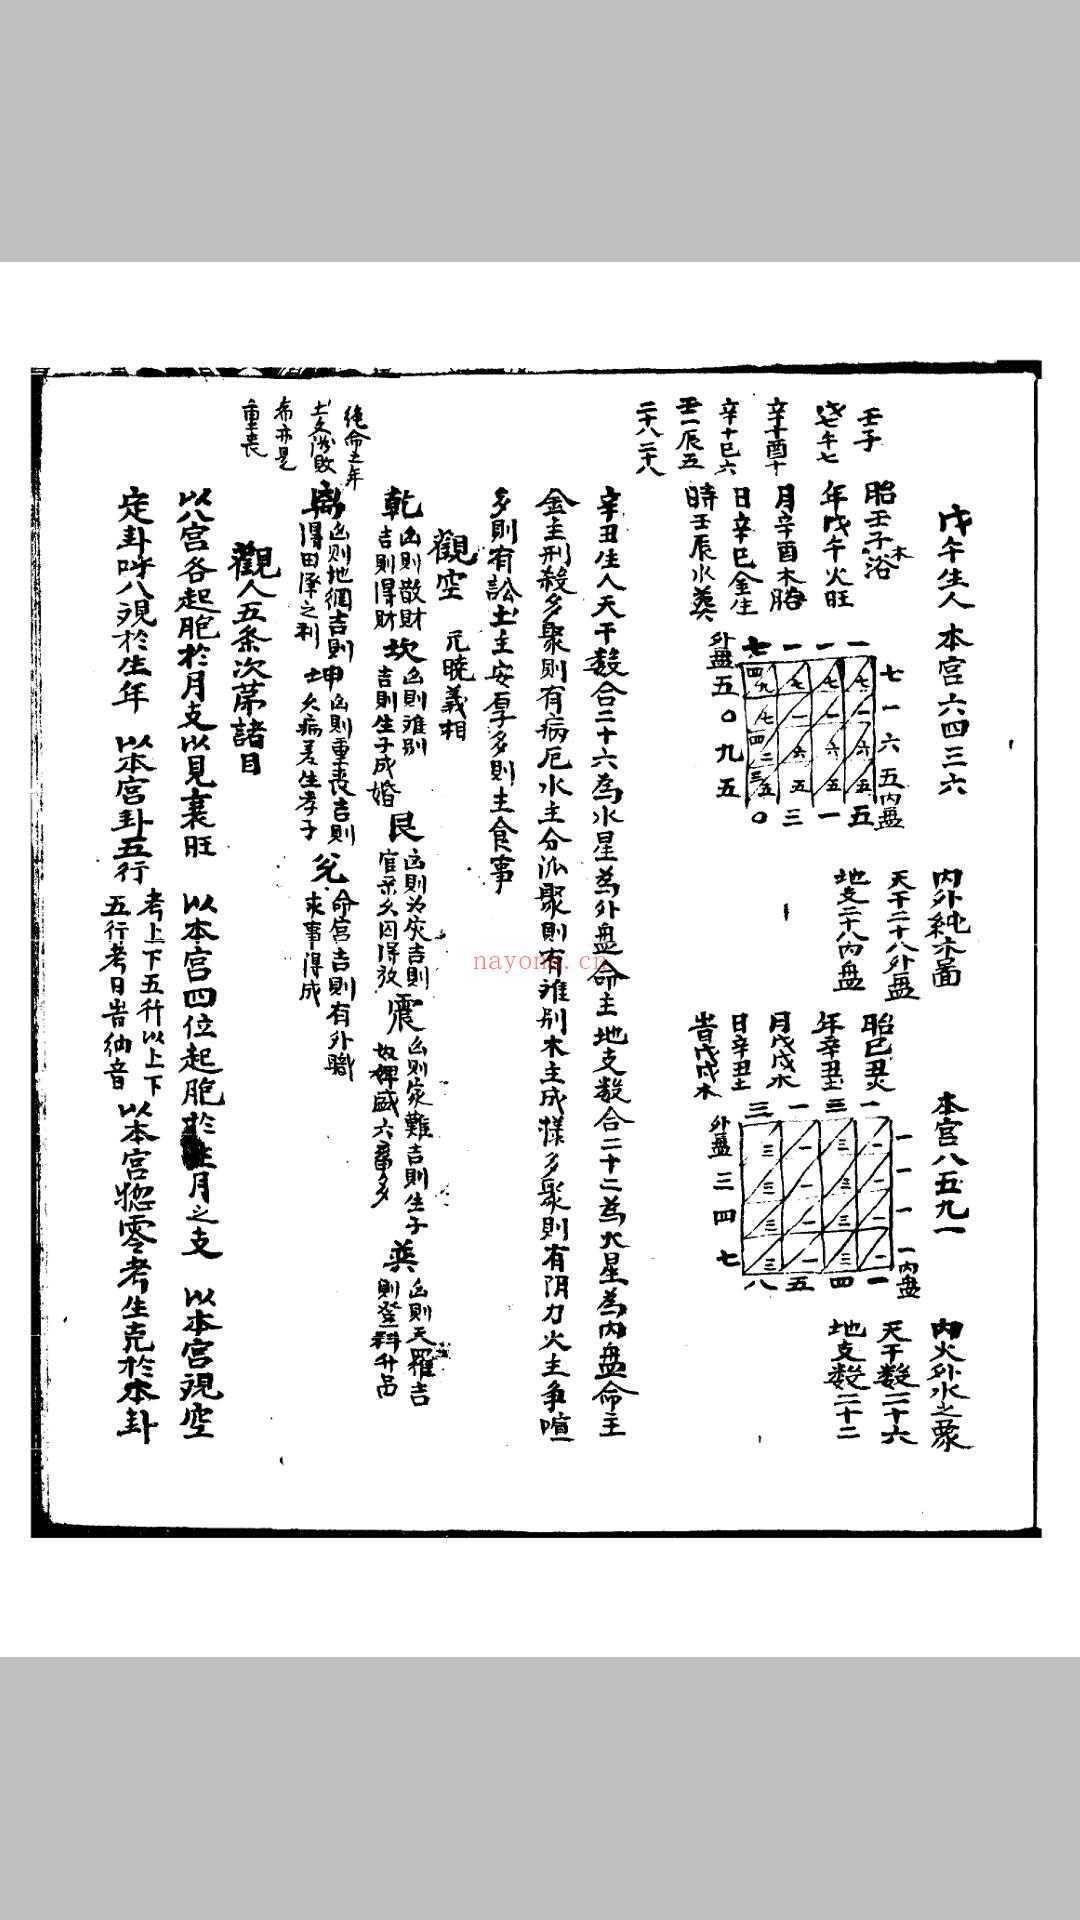 戊午生人 本宮六四三六
內外純水圖
天干二十八外盘
地支二十八內盘
壬子
戊七午七
辛十酉十
辛十巳六
壬一辰五
二十八二十八
胎壬子浴
木
年戊午火旺
月辛酉木胎
日辛巳金生
時壬辰水葬
外盤
七一一一
七一六五
內盤
五〇九五
〇三一五
本宮八五九一
內火外水之象
天干数二十六
地支数二十二
胎巳丑火
年辛丑土
月戊戌木
日辛丑土
岩戊戌木
外盤
三一三一
一一一一
內盤
三四七
八五四一
辛丑生人天干数合二十六為水星為外盘命主 地支数合二十二為火星為內盘命主
金主刑殺多聚則有病厄水主分派聚則有准别木主成樣多聚則有阴力火主争喧
多則有訟土主安厚多則主食事
觀空 元曉義相
乾 凶則散財 吉則得財 坎 凶則难别 吉則生子成婚 艮 凶則为灾吉則 官禾久囚得放 震 凶則家難吉則生子 奴婢盛六畜多 巽 凶則天羅吉 則登科升品
絶命之年
重喪
离 凶則地網吉則 得田澤之利 坤 凶則重喪吉則 久病差生孝子 兌 命宮吉則有外職 求事得成
觀人五条次第諸目
以八宮各起胞於月支以見衰旺 以本宮四位起胞於生月之支 以本宮視空
定卦呼八視於生年 以本宮卦五行 考上下五行以上下 五行考日岩納音 以本宮摠零考生克於本卦
nayona.cn